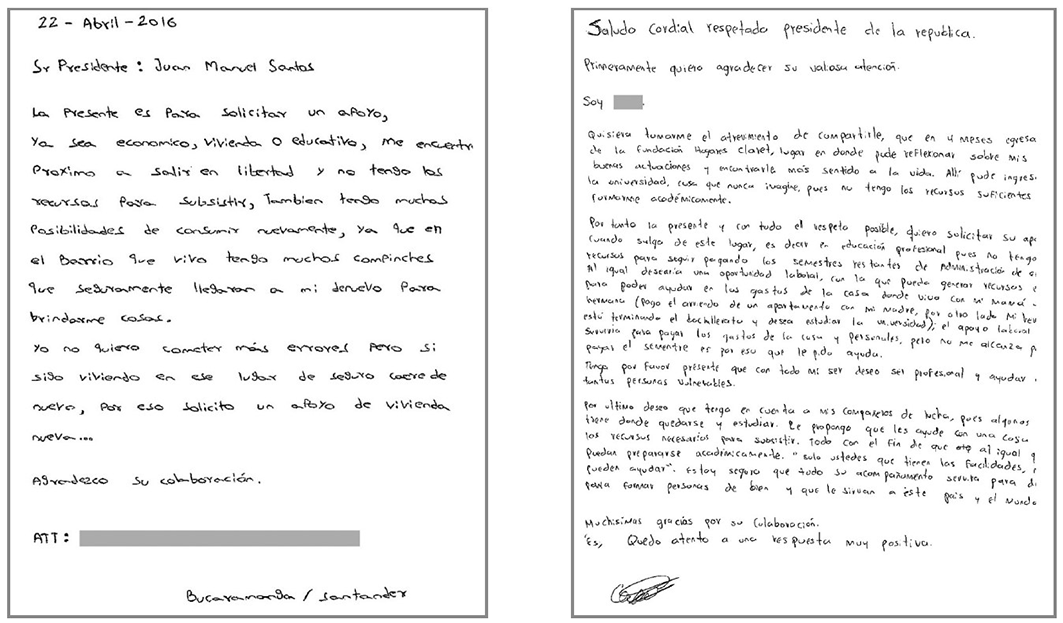 22 - Abril - 2016
Sr Presidente : Juan Manuel Santos
La Presente es Para solicitar un apoyo,
Ya sea economico, vivienda o educativo, me encuentr
Proximo a salir en libertad y no tengo los
recursos Para subsistir, Tambien tengo muchas
Posibilidades de consumir nuevamente, ya que en
el Barrio que vivo tengo muchos compinches
que seguramente llegaran a mi denuevo Para
brindarme cosas.
Yo no quiero cometer más errores Pero si
sigo viviendo en ese lugar de seguro caere de
nuevo, Por eso solicito un apoyo de vivienda
nueva...
Agradezco su colaboración.
ATT :
Bucaramanga / santander
Saludo Cordial respetado presidente de la republica.
Primeramente quiero agradecer su valiosa atención.
Soy
Quisiera tomarme el atrevimiento de compartirle, que en 4 meses egresa
de la Fundación Hogares Claret, lugar en donde pude reflexionar sobre mis
buenas actuaciones y encontrarle más sentido a la vida. Allí pude ingres
la universidad, cosa que nunca imagine, pues no tengo los recursos suficientes
formarme académicamente.
Por tanto la presente y con todo el respeto posible, quiero solicitar su apo
cuando salga de este lugar, es decir en educación profesional pues no tengo
recursos para seguir pagando los semestres restantes de Administración de
Al igual desearia una oportunidad laboral, con la que pueda generar recursos e
para poder ayudar en los gastos de la casa donde vivo con mi mamá
hermana (pago el arriendo de un apartamento con mi madre, por otro lado mi her
está terminando el bachillerato y desea estudiar la universidad); el apoyo laboral
serviria para pagar los gastos de la casa y personales, pero no me alcanza p
pagar el semestre es por eso que le pido ayuda.
Tenga por favor presente que con todo mi ser deseo ser profesional y ayudar
tantas personas vulnerables.
Por ultimo deseo que tenga en cuenta a mis compañeros de lucha, pues algunos
tiene donde quedarse y estudiar. Le propongo que les ayude con una casa
los recursos necesarios para subsistir. Todo con el fin de que al igual q
puedan prepararse académicamente. "solo ustedes que tienen las facilidades,
pueden ayudar". Estoy seguro que todo su acompañamiento servira para di
para formar personas de bien y que le sirvan a éste pais y el mundo
Muchisimas gracias por su colaboración.
Es, Quedo atento a una respuesta muy positiva.